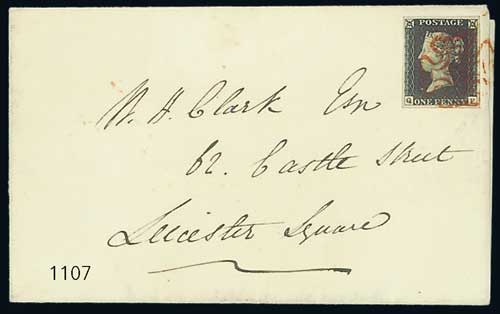 POSTAGE
ONE PENNY
W. H. Clark Esq
62. Castle Street
Leicester Square
1107